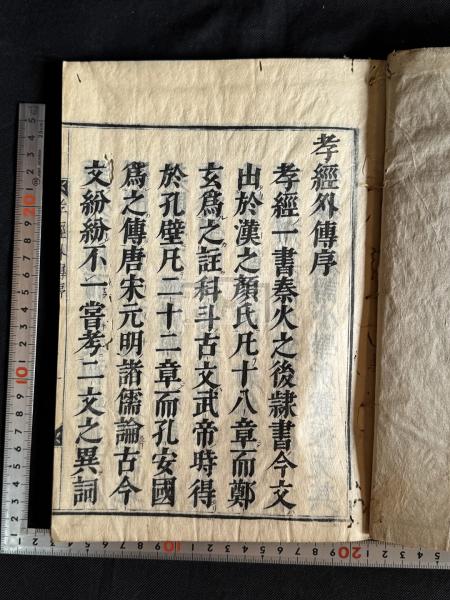 孝經外傳序
孝經一書秦火之後隷書今文
出於漢之顔氏凡十八章而鄭
玄爲之註科斗古文武帝時得
於孔壁凡二十二章而孔安國
爲之傳唐宋元明諸儒論古今
文紛紛不一嘗考二文之異詞
孝經外傳序